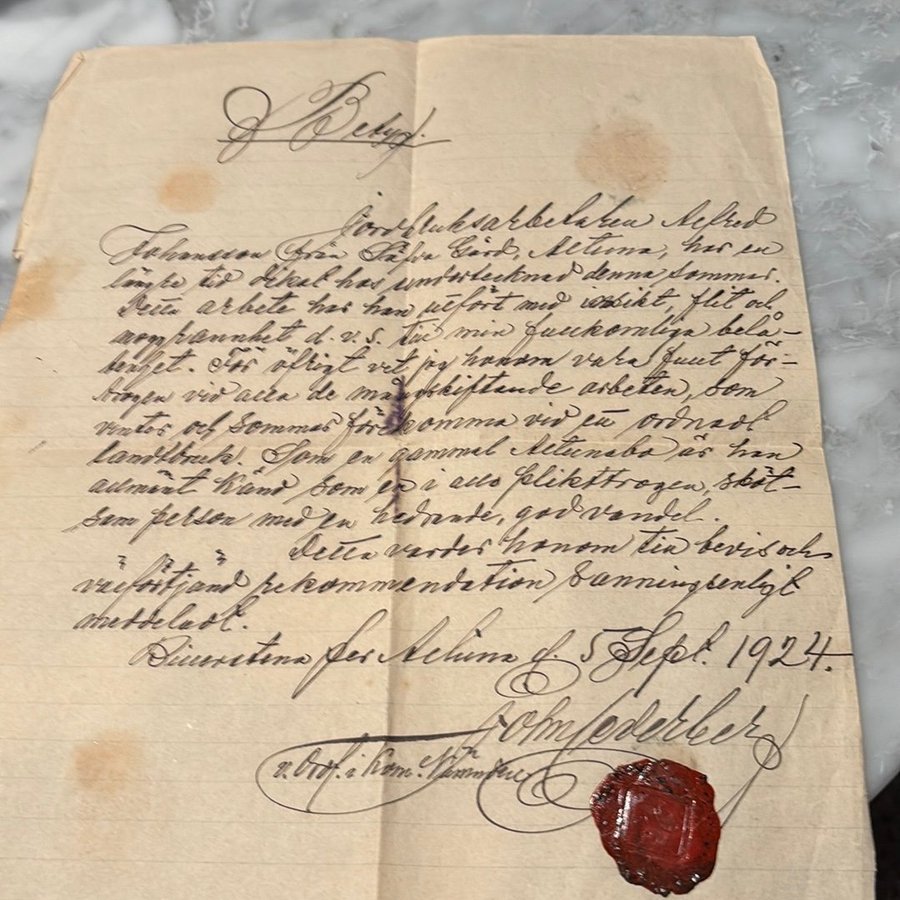 Betyg.
Jordbruksarbetaren Alfred
Johansson från Säfva Gård, Altuna, har en
längre tid dikat hos undertecknad denna sommar.
Detta arbete har han utfört med insikt, flit och
noggrannhet d.v.s. till min fullkomliga belå-
tenhet. För öfrigt vet jag honom vara fullt för-
trogen vid alla de mångskiftande arbeten, som
vinter och sommar förekomma vid ett ordnadt
landtbruk. Som en gammal Altunabo är han
allmänt känd som en i allo plikttrogen, sköt-
sam person med en hedrande, god vandel.
Detta varder honom till bevis och
välförtjänd rekommendation sanningsenligt
meddeladt.
per Altuna d. 5 Sept. 1924.
John Cederberg
v. Ordf. i Kom. Nämnden